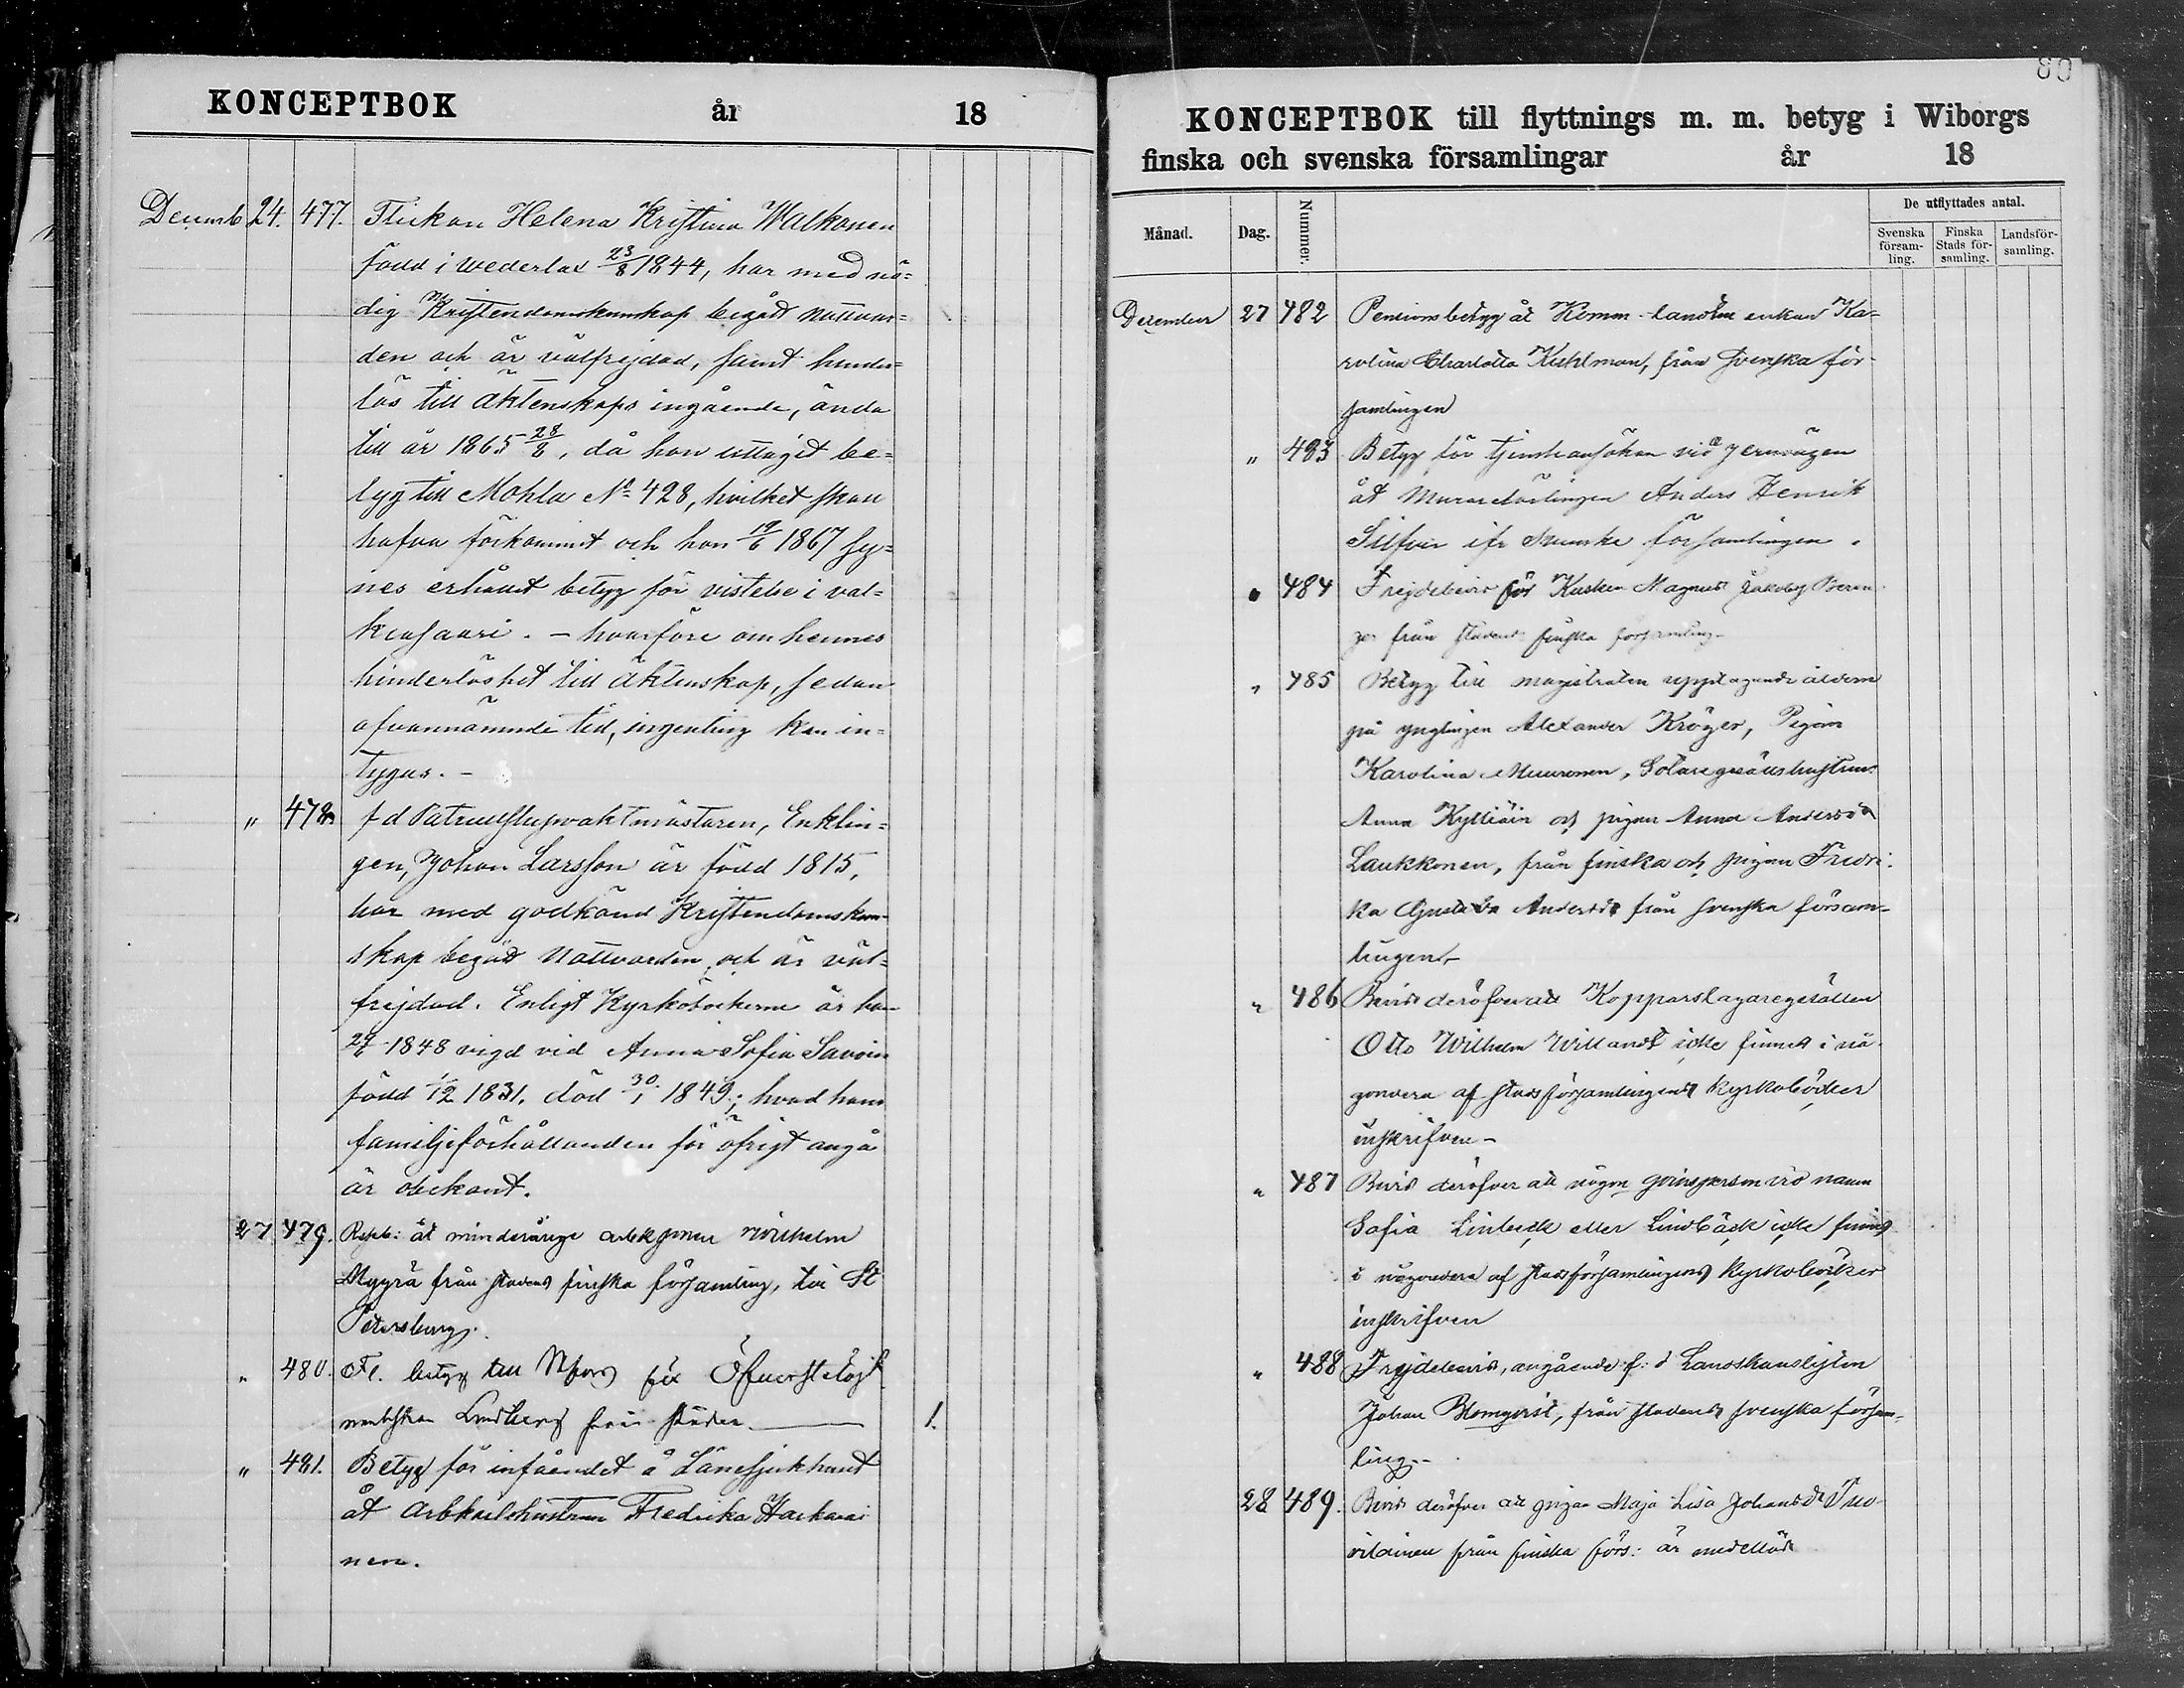 KONCEPTBOK år 18
Decemb 24. 477. Flickan Helena Kristina Walkonen
född i Wederlax 23/8 1844, har med nö=
dig Kristendomskunskap begått nattvar=
den och är välfrejdad, samt hinder=
lös till äktenskaps ingående, ända
till år 1865 28/8, då hon uttagit be=
tyg till Mohla No 428, hvilket skall
hafva förkommit och hon 19/6 1867 sy=
nes erhållit betyg för vistelse i val=
kiasaari. - hvarföre om hennes
hinderlöshet till äktenskap, sedan
ofvannämnde tid, ingenting kan in=
tygas. -
" 478. f d vaktmästaren, Enklin=
gen, Johan Larsson är född 1815,
har med godkänd Kristendomskun-
skap begått Nattvarden och är väl=
frejdad. Enligt Kyrkoböckerne är han
29/6 1848 vigd vid Anna Sofia Savoin
född 1/12 1831. död 30/1 1849; hvad hans
familjeförhållanden för öfrigt angå
är obekant.
27 479. Respb: åt minderårige Wilhelm
Myyrä från stadens finska församling, till St
Petersburg.
" 480. Fl. betyg till Nfors för Öfverstelöjt
nantskan Lindberg från staden 1.
" 481. Betyg för infåendet å Länesjukhuset
åt arbkarlshustrun Fredrika Harkanai
nen.
80
KONCEPTBOK till flyttnings m. m. betyg i Wiborgs
finska och svenska församlingar år 18
Månad. Dag. Nummer. De utflyttades antal.
Svenska försam-ling. Finska Stads för-samling. Landsför-samling.
December 27 482 Pensionsbetyg åt enkan Ka-
rolina Charlotta Kuhlman, från svenska för-
samlingen
" 483 Betyg för tjenstansökan vid Jernvägen
åt Murarelärlingen Anders Henrik
Silfver ifr Svenska församlingen.
" 484 Frejdebevis för Kusken Magnus Jakobsg Beran
ger från stadens finska församling-
" 485 Betyg till magistraten upptagande åldern
på ynglingen Alexander Kröger, Pigan
Karolina Muuronen, hustrun
Anna Kylliäin och pigan Anna Andersdr
Laukkonen, från finska och pigan Fredri-
ka Gustava Andersdr från svenska försam-
lingen -
" 486 Bevis deröfver att Kopparslagaregesällen
Otto Wilhelm Willandt icke finnes i nå-
gondera af stadsförsamlingens kyrkoböcker
inskrifven -
" 487 Bevis deröfver att någon qvinsperson vid namn
Sofia Linbeck eller Lindbäck icke finnes
i någondera af stadsförsamlingens kyrkoböcker
inskrifven
" 488 Frejdebevis, angående f: d Landskanslisten
Johan Blomqvist, från stadens svenska försam-
ling.-
28 489. Bevis deröfver att pigan Maja Lisa Johansdr Tuo-
vilainen från finska förs: är medellös